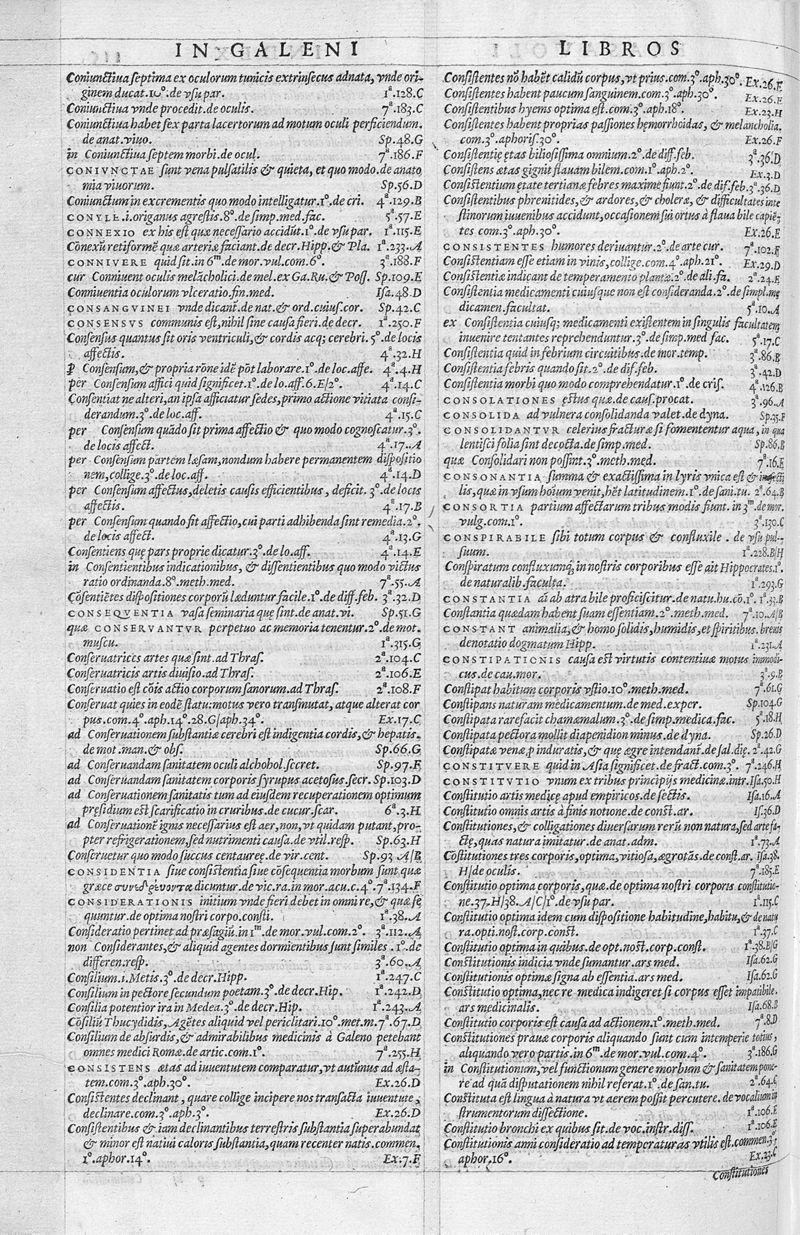 IN GALENI
Coniunctiua septima ex oculorum tunicis extrinsecus adnata, vnde ori-
ginem ducat. 10°. de vsu par. 1ª.128.C
Coniunctiua vnde procedit. de oculis. 7ª.183.C
Coniunctiua habet sex parta lacertorum ad motum oculi perficiendum.
de anat. viuo. Sp.48.G
in Coniunctiua septem morbi. de ocul. 7ª.186.F
CONIVNCTAE sunt vena pulsatilis & quieta, et quo modo. de anato
mia viuorum. Sp.56.D
Coniunctum in excrementis quo modo intelligatur. 1°. de cri. 4ª.129.B
CONYLE .i. origanus agrestis. 8°. de simp. med. fac. 5ª.57.E
CONNEXIO ex his est quæ necessario accidũt. 1°. de vsu par. 1ª.115.E
Cõnexũ retiformẽ quæ arteriæ faciant. de decr. Hipp. & Pla. 1ª.233.A
CONNIVERE quid sit. in 6ᵐ. de mor. vul. com. 6°. 3ª.188.F
cur Conniuent oculi melãcholici. de mel. ex Ga. Ru. & Poss. Sp.109.E
Conniuentia oculorum vlceratio. fin. med. Isa.48.D
CONSANGVINEI vnde dicant̃. de nat. & ord. cuius. cor. Sp.42.C
CONSENSVS communis est, nihil sine causa fieri. de decr. 1ª.250.F
Consensus quantus sit oris ventriculi, & cordis acq; cerebri. 5°. de locis
affectis. 4ª.32.H
ꝑ Consensum, & propria rõne idẽ põt laborare. 1°. de loc. affe. 4ª.4.H
per Consensum affici quid significet. 1°. de lo. aff. 6.E/2°. 4ª.14.C
Consentiat ne alteri, an ipsa afficiatur sedes, primo actione vitiata consi-
derandum. 3°. de loc. aff. 4ª.15.C
per Consensum quãdo sit prima affectio & quo modo cognoscatur. 3°.
de locis affect. 4ª.17.A
per Consensum partem læsam, nondum habere permanentem dispositio
nem, collige. 3°. de loc. aff. 4ª.14.D
per Consensum affectus, deletis causis efficientibus, deficit. 3°. de locis
affectis. 4ª.17.B
per Consensum quando sit affectio, cui parti adhibenda sint remedia. 2°.
de locis affect. 4ª.13.G
Consentiens quę pars proprie dicatur. 3°. de lo. aff. 4ª.14.E
in Consentientibus indicationibus, & dissentientibus quo modo victus
ratio ordinanda. 8ª. meth. med. 7ª.55.A
Cõsentiẽtes dispositiones corporũ læduntur facile. 1°. de diff. feb. 3ª.32.D
CONSEQVENTIA vasa seminaria quę sint. de anat. vi. Sp.51.G
quæ CONSERVANTVR perpetuo ac memoria tenentur. 2°. de mot.
muscu. 1ª.315.G
Conseruatrices artes quæ sint. ad Thras. 2ª.104.C
Conseruatricis artis diuisio. ad Thras. 2ª.106.E
Conseruatio est cõis actio corporum sanorum. ad Thras. 2ª.108.F
Conseruat quies in eodẽ statu: motus vero transmutat, atque alterat cor
pus. com. 4ª. aph. 14°. 28.G/aph. 34°. Ex.17.C
ad Conseruationem substantiæ cerebri est indigentia cordis, & hepatis.
de mot. man. & obs. Sp.66.G
ad Conseruandam sanitatem oculi alchohol. secret. Sp.97.E
ad Conseruandam sanitatem corporis syrupus acetosus. secr. Sp.103.D
ad Conseruationem sanitatis tum ad eiusdem recuperationem optimum
pręsidium est scarificatio in cruribus. de cucur. scar. 6ª.3.H
ad Conseruationẽ ignis necessarius est aer, non, vt quidam putant, pro-
pter refrigerationem, sed nutrimenti causa. de vtil. resp. Sp.63.H
Conseruetur quo modo succus centaureę. de vir. cent. Sp.93 A/B
CONSIDENTIA siue consistentia siue cõsequentia morbum sunt. quæ
græce συνεδρεύοντα dicuntur. de vic. ra. in mor. acu. c. 4°. 7ª.134.F
CONSIDERATIONIS initium vnde fieri debet in omni re, & quæ se
quuntur. de optima nostri corpo. consti. 1ª.38.A
Consideratio pertinet ad præsagiũ. in 1ᵐ. de mor. vul. com. 2°. 3ª.112.A
non Considerantes, & aliquid agentes dormientibus sunt similes. 1°. de
differen. resp. 3ª.60.A
Consilium .i. Metis. 3°. de decr. Hipp. 1ª.247.C
Consilium in pectore secundum poetam. 3°. de decr. Hip. 1ª.242.D
Consilia potentior ira in Medea. 3°. de decr. Hip. 1ª.243.A
Cõsiliũ Thucydidis, Agẽtes aliquid vel periclitari. 10°. met. m. 7ª.67.D
Consilium de absurdis, & admirabilibus medicinis à Galeno petebant
omnes medici Romæ. de artic. com. 1°. 7ª.255.H
CONSISTENS ætas ad iuuentutem comparatur, vt autũnus ad æsta-
tem. com. 3ª. aph. 30°. Ex.26.D
Consistentes declinant, quare collige incipere nos transacta iuuentute,
declinare. com. 3ª. aph. 3°. Ex.26.D
Consistentibus & iam declinantibus terrestris substantia superabundat
& minor est natiui caloris substantia, quam recenter natis. commen.
1°. aphor. 14°. Ex.7.F
LIBROS
Consistentes nõ habẽt calidũ corpus, vt prius. com. 3ª. aph. 30°. Ex.26.F
Consistentes habent paucum sanguinem. com. 3ª. aph. 30°. Ex.26.E
Consistentibus hyems optima est. com. 3ª. aph. 18°. Ex.23.H
Consistentes habent proprias passiones hęmorrhoidas, & melancholia.
com. 3ª. aphoris. 30°. Ex.26.F
Consistentię ętas biliosissima omnium. 2°. de diff. feb. 3ª.36.D
Consistens ætas gignit flauam bilem. com. 1ª. aph. 2°. Ex.3.D
Consistentium ętate tertianæ febres maxime fiunt. 2°. de dif. feb. 3ª.36.D
Consistentibus phrenitides, & ardores, & choleræ, & difficultates inte
stinorum iuuenibus accidunt, occasionem sui ortus à flaua bile capiẽ-
tes com. 3ª. aph. 30°. Ex.26.E
CONSISTENTES humores deriuantur. 2°. de arte cur. 7ª.102.F
Consistentiam esse etiam in vinis, collige. com. 4ª. aph. 21°. Ex.29.D
Consistentiæ indicant de temperamento plantæ. 2°. de ali. fa. 2ª.24.E
Consistentia medicamenti cuiusque non est consideranda. 2°. de simpl. me
dicamen. facultat. 5ª.10.A
ex Consistentia cuiusq; medicamenti existentem in singulis facultatem
inuenire tentantes reprehenduntur. 3°. de simp. med fac. 5ª.17.C
Consistentia quid in febrium circuitibus. de mor. temp. 3ª.86.B
Consistentia febris quando sit. 2°. de dif. feb. 3ª.42.D
Consistentia morbi quo modo comprehendatur. 1°. de cris. 4ª.126.B
CONSOLATIONES ęstus quæ. de caus. procat. 3ª.96.A
CONSOLIDA ad vulnera consolidanda valet. de dyna. Sp.25.F
CONSOLIDANTVR celerius fracturæ si fomententur aqua, in qua
lentisci folia sint decocta. de simp. med. Sp.86.B
quæ Consolidari non possint. 3°. meth. med. 7ª.16.E
CONSONANTIA summa & exactissima in lyris vnica est &
lis, quæ in vsum hoium venit, hẽt latitudinem. 1°. de sani. tu. 2ª.64.B
CONSORTIA partium affectarum tribus modis fiunt. in 3ᵐ. de mor.
vulg. com. 1°. 3ª.130.C
CONSPIRABILE sibi totum corpus & confluxile. de vsu pul-
suum. 1ª.228.B/H
Conspiratum confluxumq́, in nostris corporibus esse ait Hippocrates. 1°.
de naturalib. faculta. 1ª.293.G
CONSTANTIA aĩ ab atra bile proficiscitur. de natu. hu. cõ. 1°. 1ª.33.B
Constantia quædam habent suam essentiam. 2°. meth. med. 7ª.10.A/B
CONSTANT animalia, & homo solidis, humidis, et spiritibus. breuis
denotatio dogmatum Hipp. 1ª.231.A
CONSTIPATIONIS causa est virtutis contentiuæ motus immodi-
cus. de cau. mor. 3ª.9.B
Constipat habitum corporis vstio. 10°. meth. med. 7ª.61.G
Constipans naturam medicamentum. de med. exper. Sp.104.G
Constipata rarefacit chamæmalum. 3°. de simp. medica. fac. 5ª.18.H
Constipata pectora mollit diapenidion minus. de dyna. Sp.26.D
Constipatæ venæ ꝑ induratis, & quę ægre intendant̃. de sal. dię. 2ª.42.G
CONSTITVERE quid in Asia significet. de fract. com. 3°. 7ª.246.H
CONSTITVTIO vnum ex tribus principijs medicinæ. intr. Isa.50.H
Constitutio artis medicę apud empiricos. de sectis. Isa.16.A
Constitutio omnis artis à finis notione. de const. ar. Is.36.D
Constitutiones, & colligationes diuersarum rerũ non natura, sed artefa-
ctę, quas natura imitatur. de anat. adm. 1ª.73.A
Cõstitutiones tres corporis, optima, vitiosa, ægrotãs. de const. ar. Isa.38.
H/de oculis. 7ª.185.E
Constitutio optima corporis, quæ. de optima nostri corporis constitutio-
ne. 37.H/38.A/C/1°. de vsu par. 1ª.115.C
Constitutio optima idem cum dispositione habitudine, habitu, & de natu
ra. opti. nost. corp. const. 1ª.37.C
Constitutio optima in quibus. de opt. nost. corp. const. 1ª.38.B/G
Constitutionis indicia vnde sumantur. ars med. Isa.62.G
Constitutionis optimæ signa ab essentia. ars med. Isa.62.G
Constitutio optima, nec re medica indigeret si corpus esset impatibile.
ars medicinalis. Isa.68.B
Constitutio corporis est causa ad actionem. 1°. meth. med. 7ª.8.D
Constitutiones prauæ corporis aliquando sunt cum intemperie totius,
aliquando vero partis. in 6ᵐ. de mor. vul. com. 4°. 3ª.186.G
in Constitutionum, vel functionum genere morbum & sanitatem pone-
re ad quã disputationem nihil referat. 1°. de san. tu. 2ª.64.C
Constituta est lingua à natura vt aerem possit percutere. de vocalium in
strumentorum dissectione. 1ª.106.E
Constitutio bronchi ex quibus sit. de voc. instr. diss. 1ª.106.E
Constitutionis anni consideratio ad temperaturas vtilis est. commen. 3ª
aphor, 16°. Ex.23.C
Constitutiones